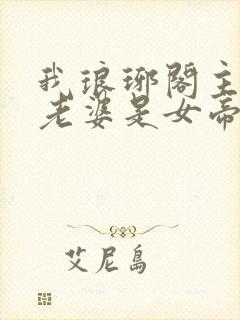 我琅琊阁主
老婆是女帝
艾尼岛